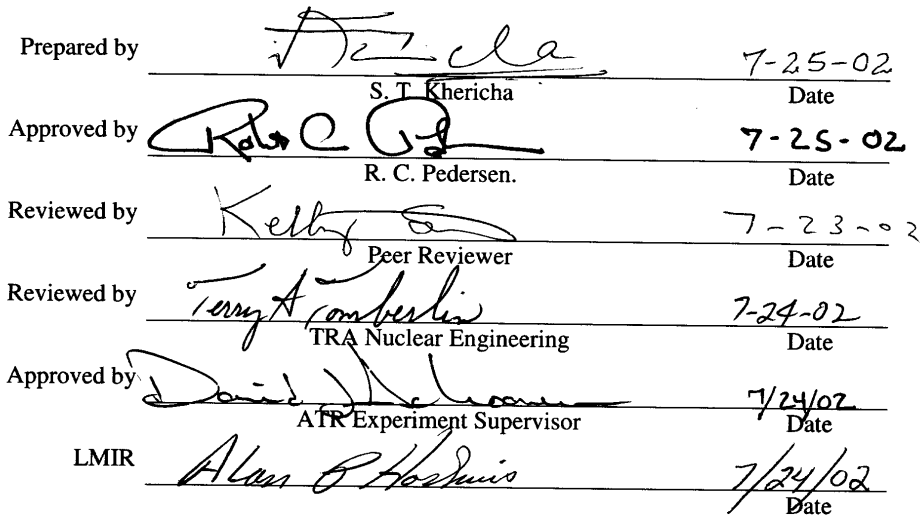 Prepared by 7-25-02
S. T. Khericha Date
Approved by 7-25-02
R. C. Pedersen. Date
Reviewed by Kelly 7-23-02
Peer Reviewer Date
Reviewed by Terry A Tomberlin 7-24-02
TRA Nuclear Engineering Date
Approved by David 7/24/02
ATR Experiment Supervisor Date
LMIR Alan 7/24/02
Date